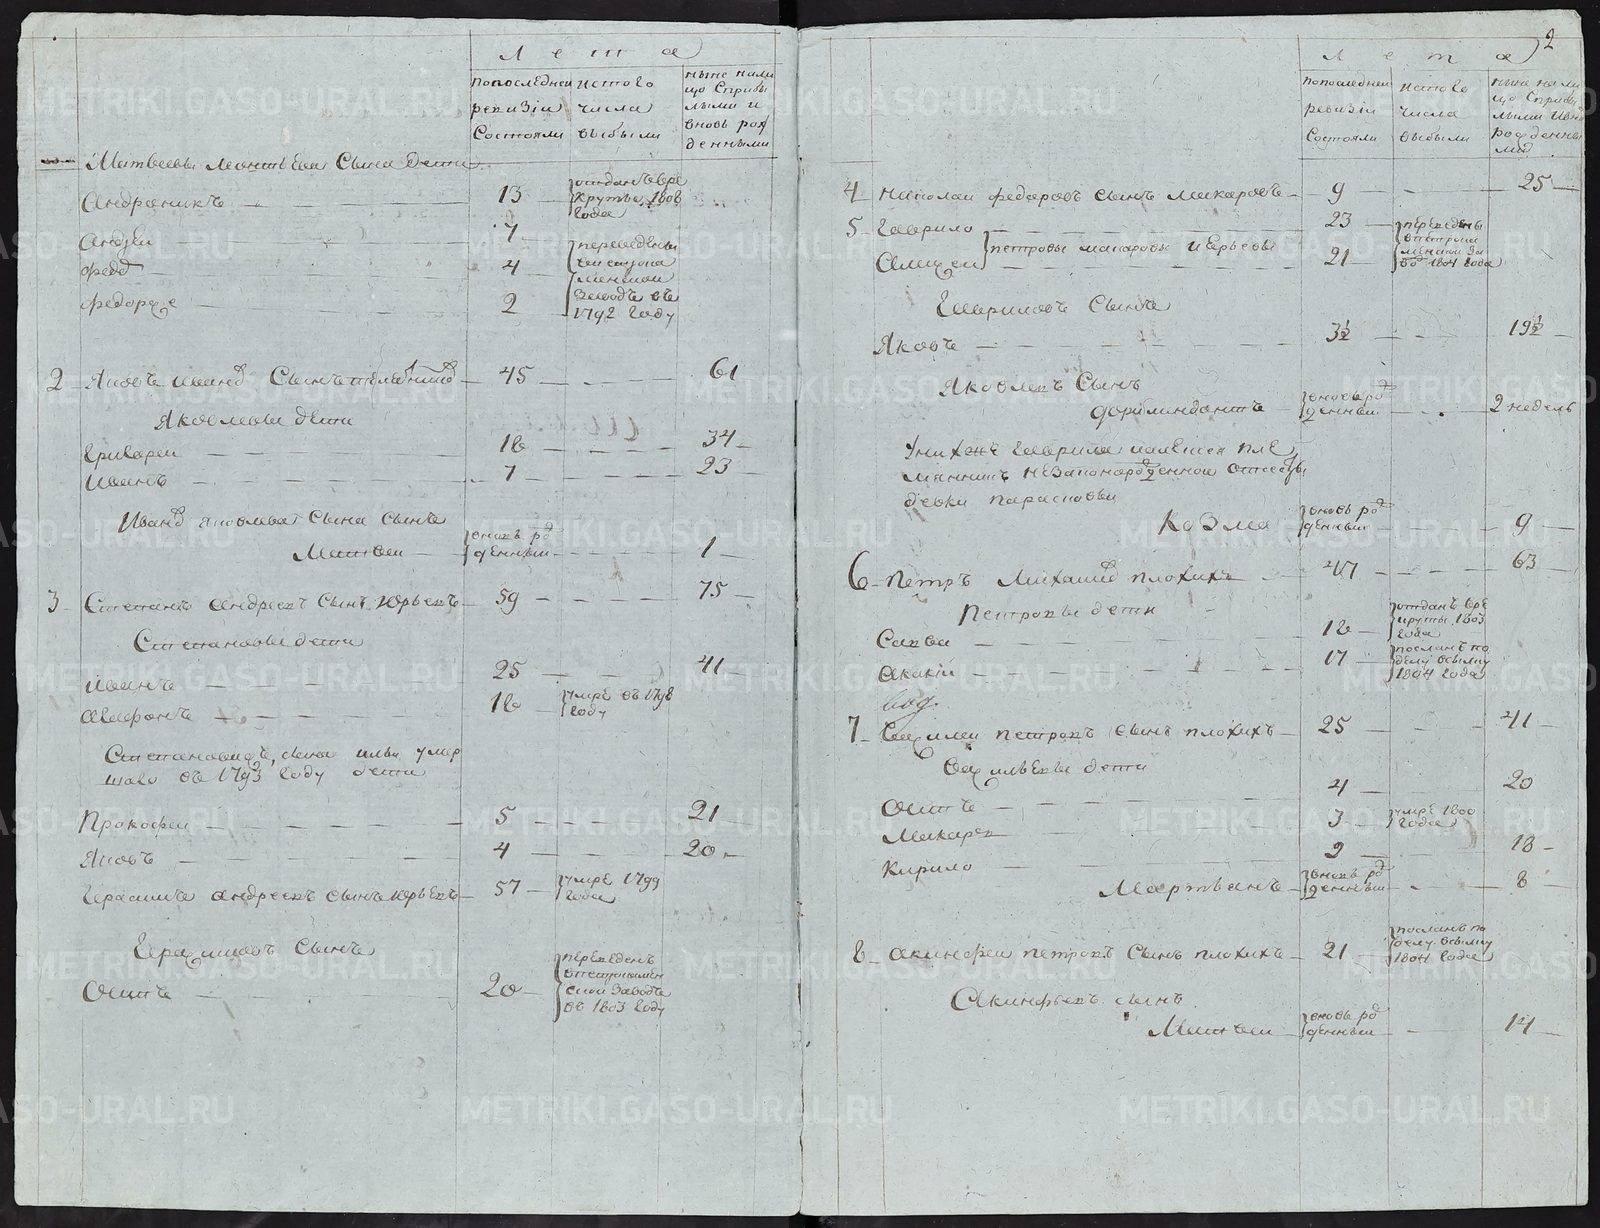 Лета
по последней ревизiи состояли
ис того числа выбыли
ныне на лицо с прибылыми и вновь рожденными
Матвеевы Леонтьева сына дети
Андроникъ 13 отданъ в рекруты 1808 года
Андрей 7
Федоръ 4 переведены
Заводъ въ
2 1792 году
2 Яковъ Иванов сынъ 45 61
Яковлевы дети
Григорей 18 34
Иванъ 7 23
Ивана Яковлева сына сынъ
Матвей вновь рожденный 1
3 Степанъ Андреевъ сынъ Юрьевъ 59 75
Степановы дети
Иванъ 25 41
Агафонъ 18 умре въ 1798 году
Степанова сына Ильи умер
шаго въ 1793 году дети
Прокофей 5 21
Яковъ 4 20
Герасимъ Андреевъ сынъ Юрьевъ 57 умре 1799 года
Герасимовъ сынъ
Осипъ 20 переведенъ в Петрокаменской заводъ въ 1803 году
2
Лета
по последней ревизiи состояли
ис того числа выбыли
ныне на лицо с прибылыми и вновь рожденными
4 Николай Федоровъ сынъ Макаровъ 9 25
5 Гаврило 23 переведены
Алексей Петровы Макаровы и Юрьевы 21 1804 года
Гавриловъ сынъ
Яковъ 3½ 19½
Яковлевъ сынъ
вновь рожденный 2 недель
У них же Гаврила имеется пле
мянникъ незаконорожденной от сестры
девки Парасковьи
Козма вновь рожденный 9
6 Петръ Михайлов Плохихъ 47 63
Петровы дети
Савва 18 отданъ в рекруты 1803 года
Акакiй 17 посланъ по делу в сылку 1804 года
7 Василей Петровъ сынъ Плохихъ 25 41
Васильевы дети
Осипъ 4 20
Макаръ 3 умре 1800 года
Кирило 2 18
Мартьянъ вновь рожденный 8
8 Акинфей Петровъ сынъ Плохихъ 21 посланъ по делу в сылку 1804 года
Акинфьевъ сынъ
Матвей вновь рожденный 14
METRIKI.GASO-URAL.RU